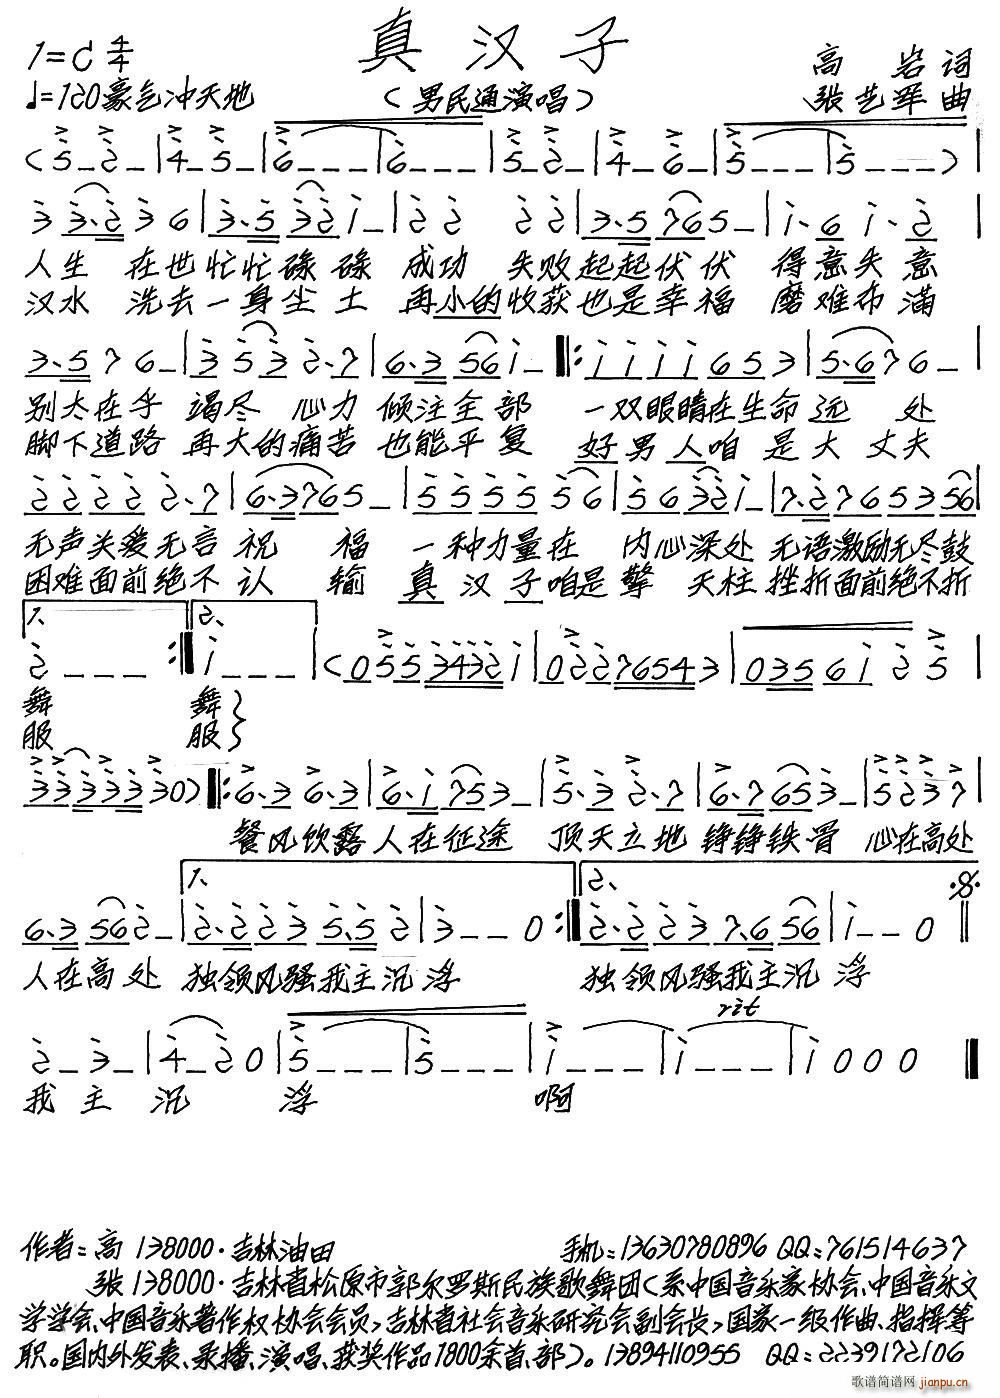 真汉子
1=C 4/4
高岩 词
♩=120豪气冲天地
(男民通演唱)
张艺军 曲
(5 - 2 - | 4 - 5 - | 6 - - - | 6 - - - | 5 - 2 - | 4 - 6 - | 5 - - - | 5 - - - )
3 3·2 3 6 | 3·5 32 1 - | 2 2 2 2 | 3·5 765 - | 1·6 1·2
人生 在世忙忙碌碌 成功 失败起起伏伏 得意失意
汉水 洗去一身尘土 再小的收获也是幸福 磨难布满
3·5 7 6 - | 3 5 3 2·7 | 6·3 56 1 - 1 1 1 1 6 5 3 | 5·6 7 6 -
别太在乎 竭尽 心力 倾注全部 一双眼睛在生命远 处
脚下道路 再大的痛苦 也能平复 好男人咱是大 丈夫
2 2 2 2 2·7 | 6·3 765 - | 5 5 5 5 56 | 5 6 32 1 - | 7·2 76 53 56
无声关爱无言祝 福 一种力量在 内心深处 无语激励无尽鼓
困难面前绝不认 输 真汉子咱是擎 天柱 挫折面前绝不折
1. 2.
2 - - - 1 - - - | (0 5 5 3432 1 | 0 2 2 7654 3 | 0 3 5 6 1 2 5
舞 舞
服 服
3 3 3 3 3 3 3 0) 6·3 6·3 | 6·1 75 3 - | 5·3 2·7 | 6·7 65 3 - | 5 2 3 7
餐风饮露人在征途 顶天立地 铮铮铁骨 心在高处
1. 2.
6·3 56 2 - 2·2 2 3 5·5 2 | 3 - - 0 2·2 2 3 7·6 56 | 1 - - 0
人在高处 独领风骚我主沉浮 独领风骚我主沉浮
rit
2 - 3 - | 4 - 2 0 | 5 - - - | 5 - - - | 1 - - - | 1 - - - | 1 0 0 0
我 主 沉 浮 啊
作者:高 138000·吉林油田 手机:13630780896 QQ:761514637
张 138000·吉林省松原市郭尔罗斯民族歌舞团(系中国音乐家协会、中国音乐文
学学会、中国音乐著作权协会会员,吉林省社会音乐研究会副会长,国家一级作曲、指挥等
职。国内外发表、录播、演唱、获奖作品1800余首、部)。13894110955 QQ:2239172106
歌谱简谱网
jianpu.cn